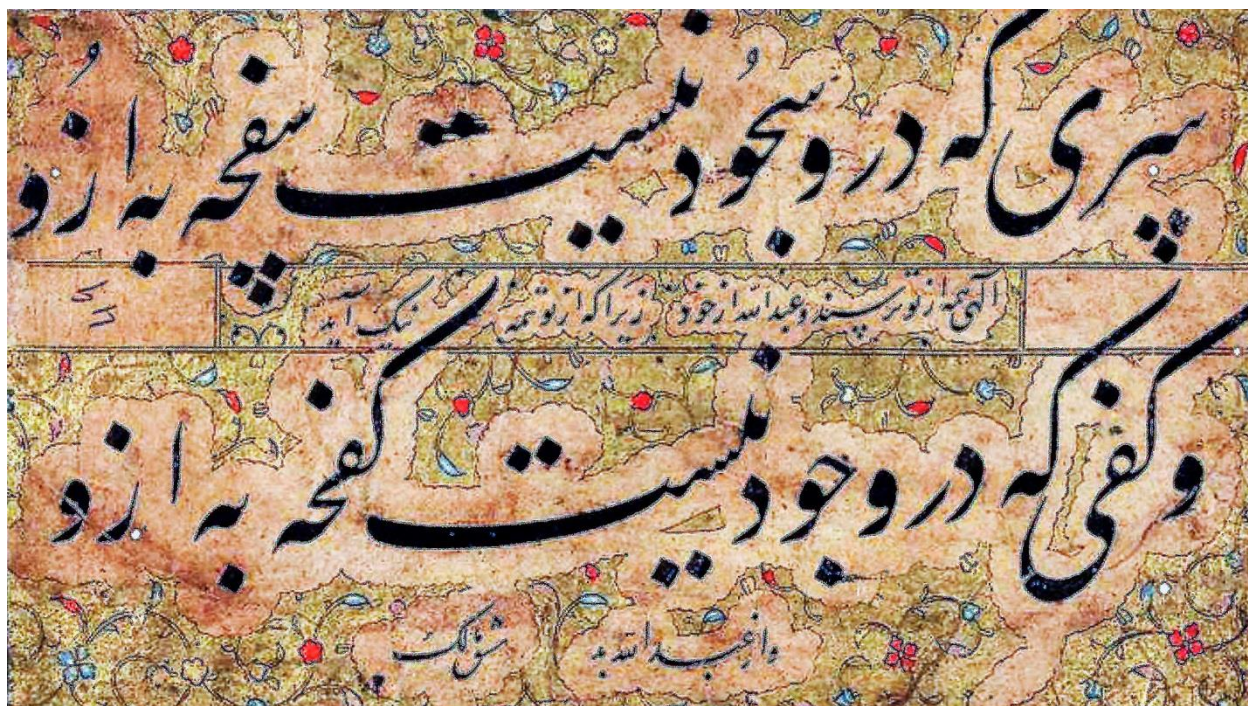 سری که درو سجود نیست سفچه به ازو
الهی همه از تو ترسند و عبدالله از خود زیرا که از تو همه نیک آید
و کفی که درو جود نیست کفچه به ازو
و از عبدالله بد
مشق مالک